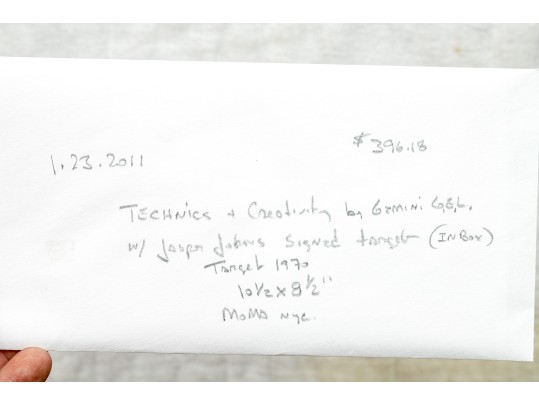 $396.18
1.23.2011
TECHNICS + Creativity by GEMINI G.E.L.
w/ Jasper Johns Signed target (IN BOX)
Target 1970
10 1/2 x 8 1/2"
MOMA nyc.